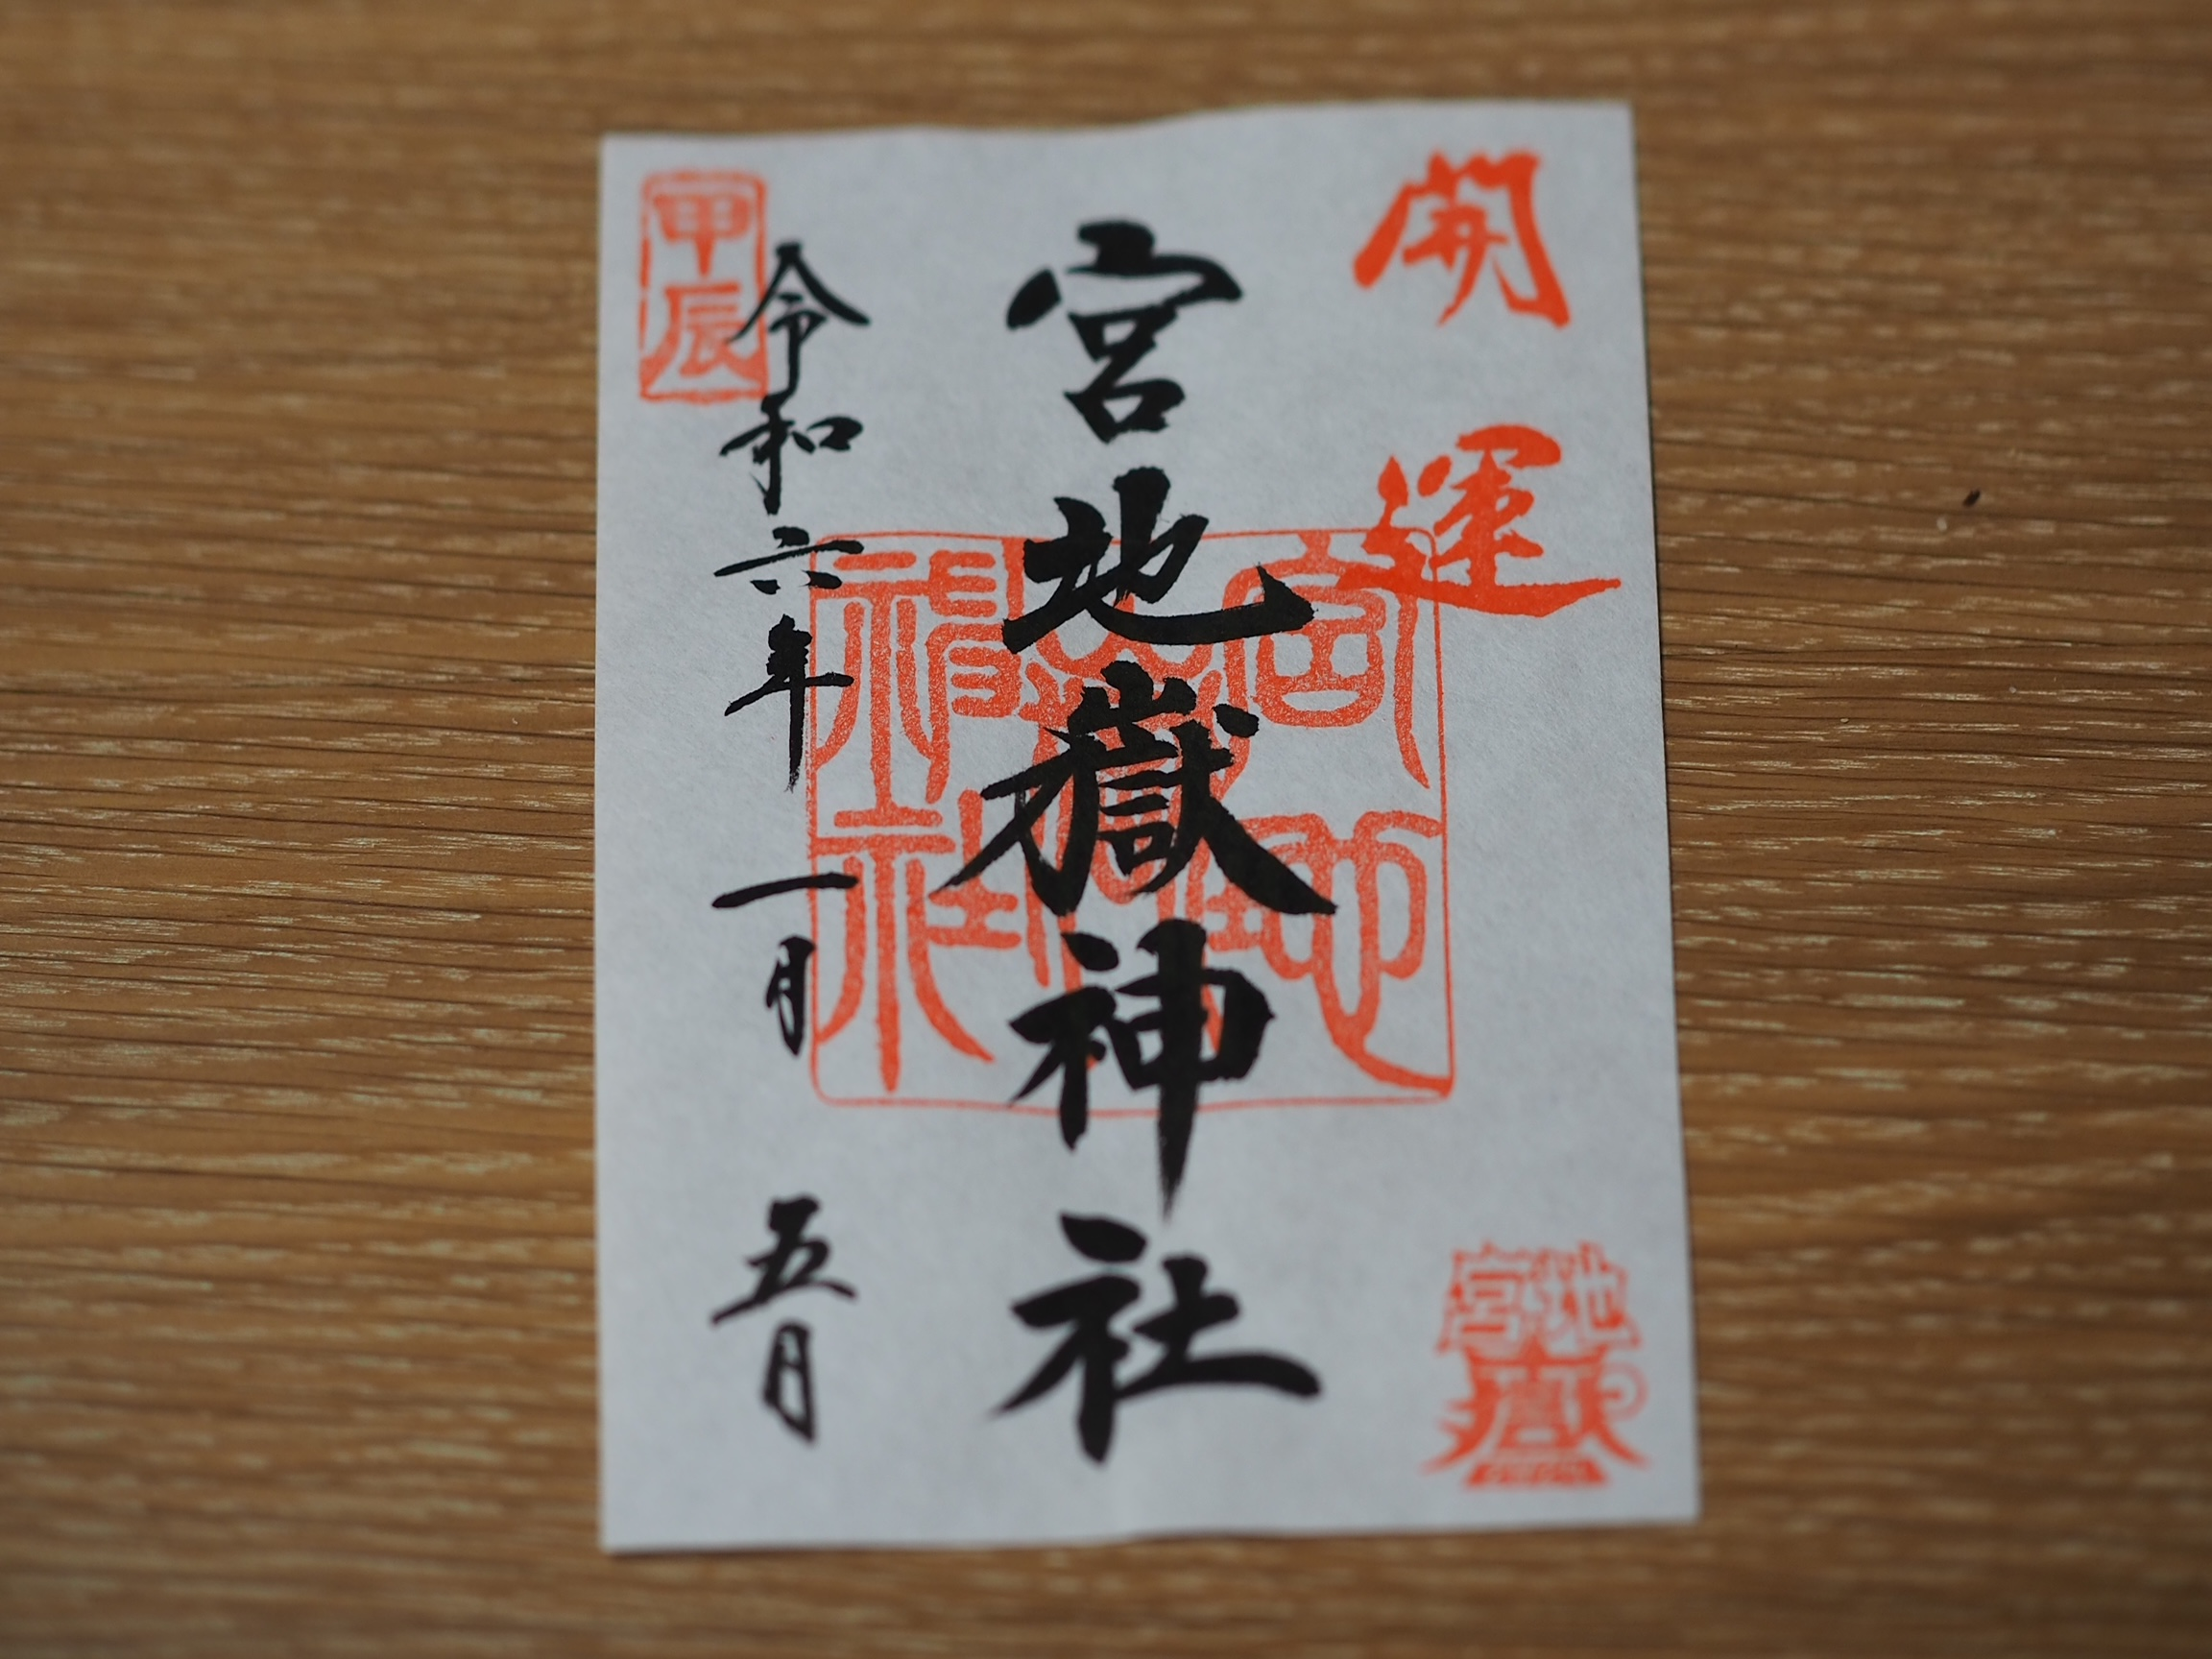 開運
宮地嶽
宮地嶽神社
宮地嶽神社
令和六年一月五日
甲辰